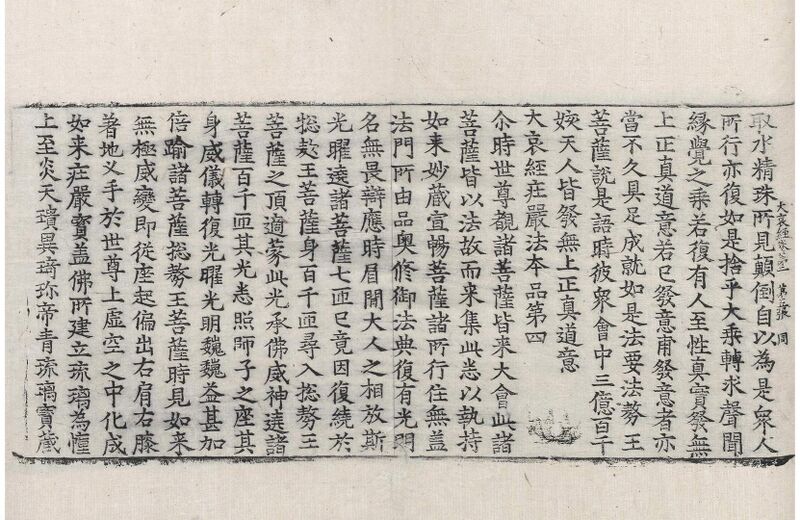 取水精珠所見顛倒自以為是衆人
大哀經卷 第 張 同
所行亦復如是捨乎大乘轉求聲聞
縁覺之乘若復有人至性真實發無
上正真道意若已發意甫發意者亦
當不久具足成就如是法要法勢王
菩薩說是語時彼衆會中三億百千
姟天人皆發無上正真道意
大哀經莊嚴法本品第四
尒時世尊觀諸菩薩皆来大會此諸
菩薩皆以法故而来集此悉以執持
如来妙蔵宣暢菩薩諸所行住無蓋
法門所由品奥修御法典復有光明
名無畏辯應時眉間大人之相放斯
光曜遶諸菩薩七匝已竟因復繞於
揔勑王菩薩身百千匝尋入揔勑王
菩薩之頂適蒙此光承佛威神遶諸
菩薩百千匝其光悉照師子之座其
身威儀轉復光曜光明魏魏益甚加
倍踰諸菩薩揔勑王菩薩時見如来
無極感變即從座起偏出右肩右膝
著地叉手於世尊上虚空之中化成
如来莊嚴寶盖佛所建立琉璃為憧
上至炎天瓄異琦珎帝青琉璃寶蔵